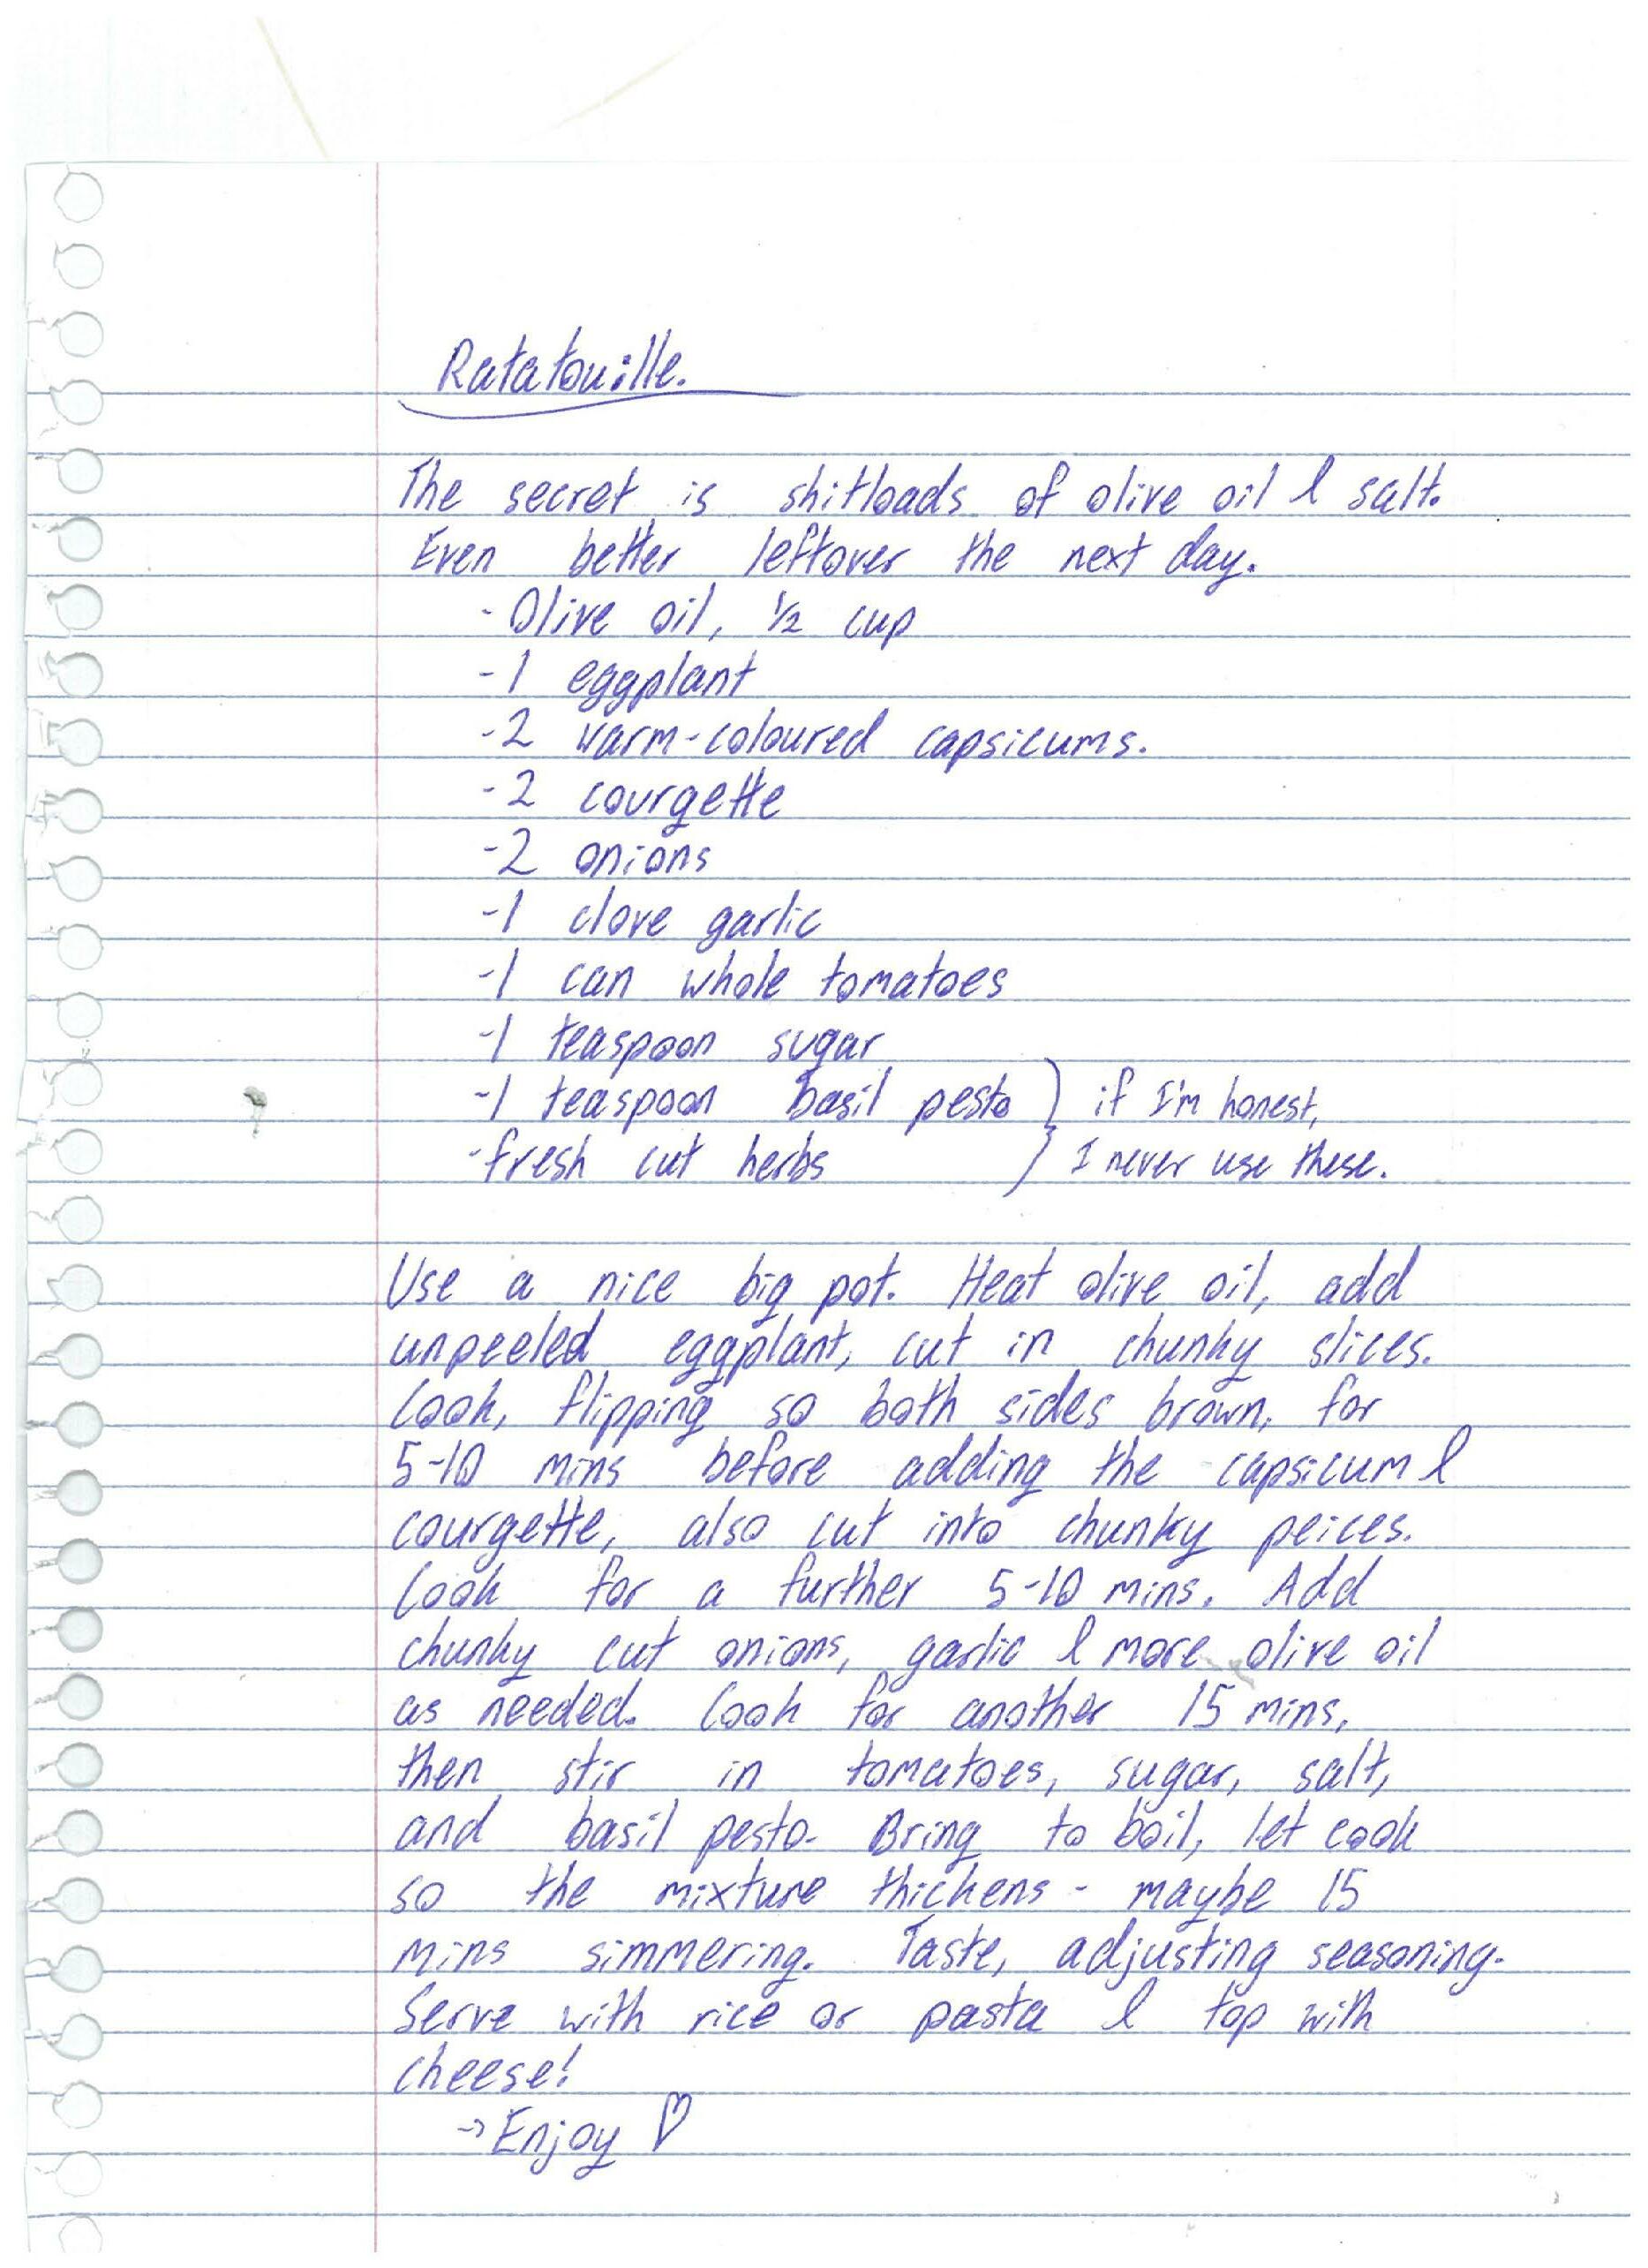 Ratatouille.
The secret is shitloads of olive oil & salt.
Even better leftover the next day.
- Olive oil, 1/2 cup
- 1 eggplant
- 2 warm-coloured capsicums.
- 2 courgette
- 2 onions
- 1 clove garlic
- 1 can whole tomatoes
- 1 teaspoon sugar
- 1 teaspoon basil pesto } if I'm honest,
- fresh cut herbs } I never use these.
Use a nice big pot. Heat olive oil, add
unpeeled eggplant, cut in chunky slices.
Cook, flipping so both sides brown, for
5-10 mins before adding the capsicum &
courgette, also cut into chunky peices.
Cook for a further 5-10 mins. Add
chunky cut onions, garlic & more olive oil
as needed. Cook for another 15 mins,
then stir in tomatoes, sugar, salt,
and basil pesto. Bring to boil, let cook
so the mixture thickens - maybe 15
mins simmering. Taste, adjusting seasoning.
Serve with rice or pasta & top with
cheese!
→ Enjoy ♡